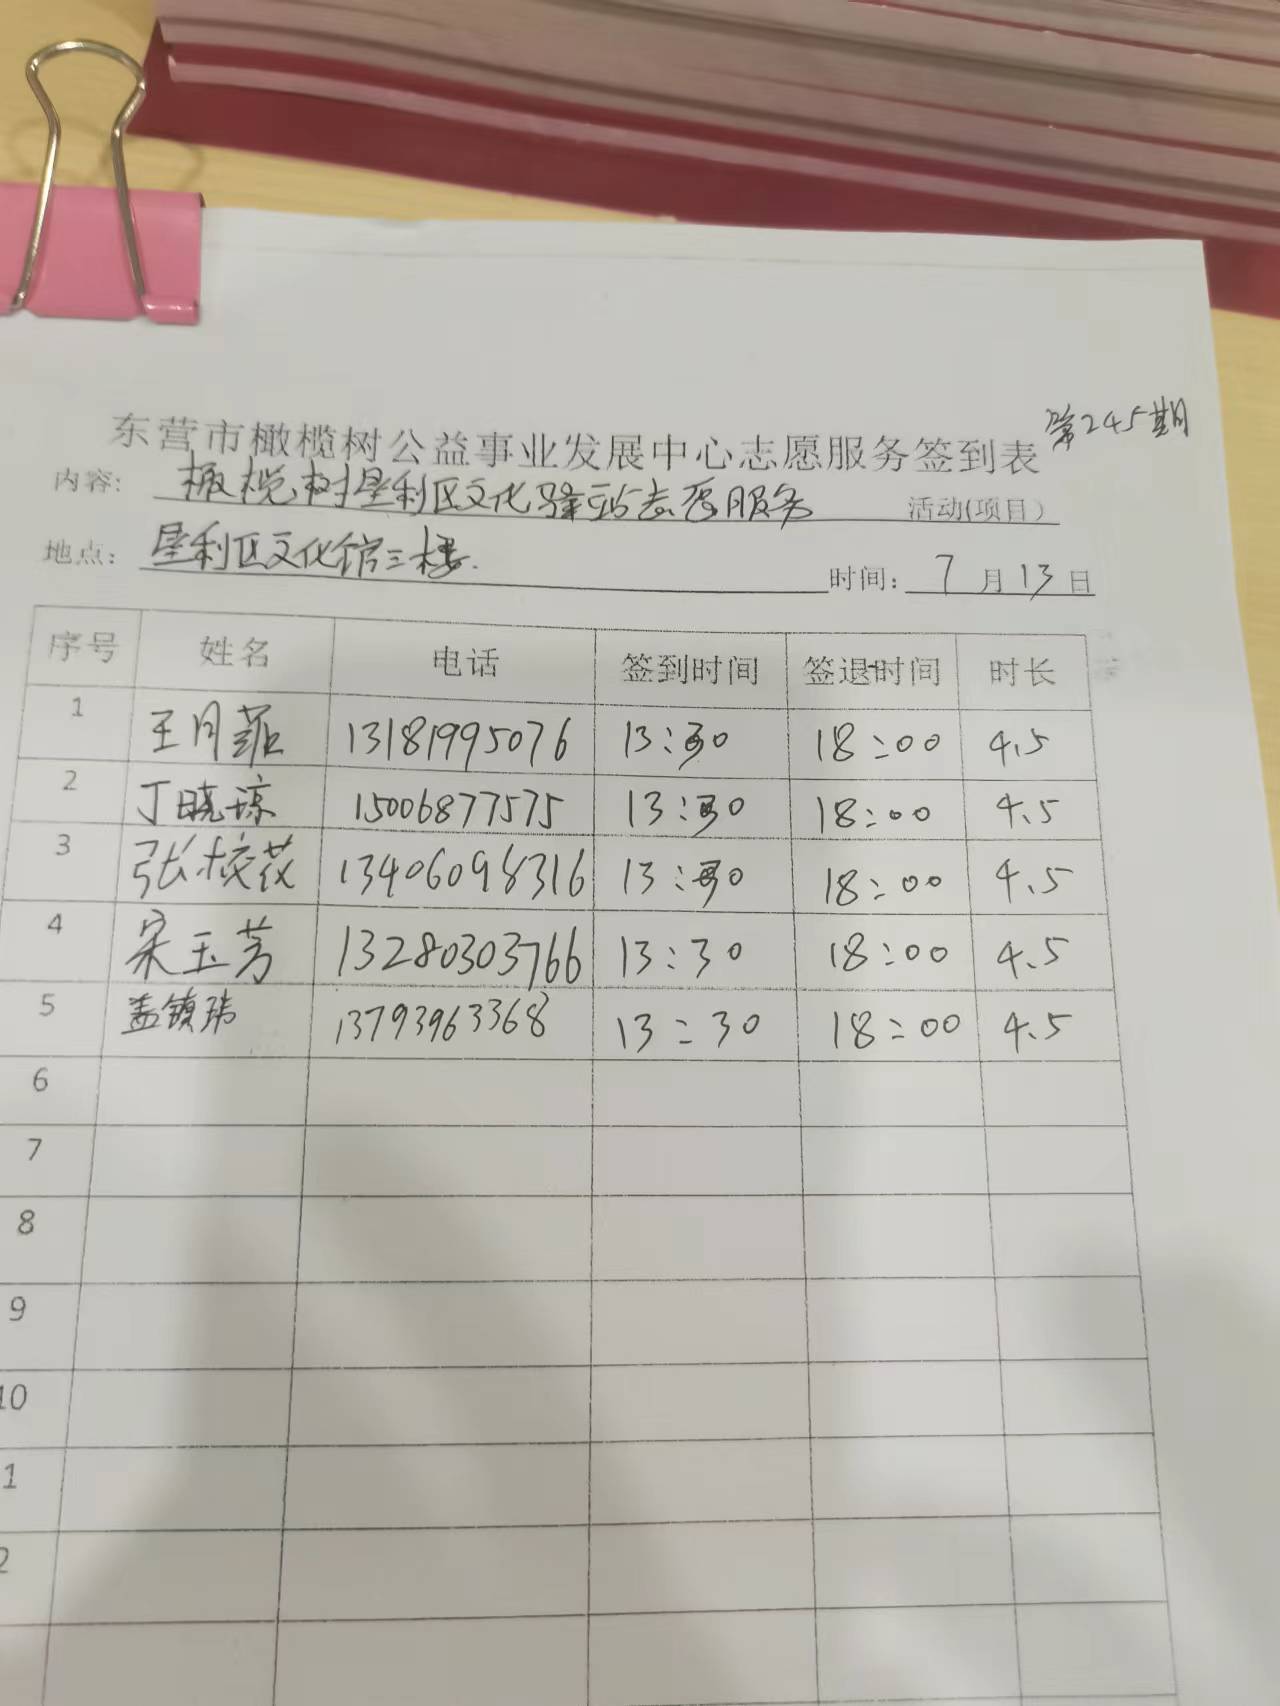 东营市橄榄树公益事业发展中心志愿服务签到表 第245期
内容: 橄榄树垦利区文化驿站志愿服务 活动(项目)
地点: 垦利区文化馆三楼. 时间: 7月13日
序号 姓名 电话 签到时间 签退时间 时长
1 王月 13181995076 13:30 18:00 4.5
2 丁晓琼 15006877575 13:30 18:00 4.5
3 张校花 13406098316 13:30 18:00 4.5
4 宋玉芳 13280303766 13:30 18:00 4.5
5 孟镇玮 13793963368 13:30 18:00 4.5
6
7
8
9
10
1
2